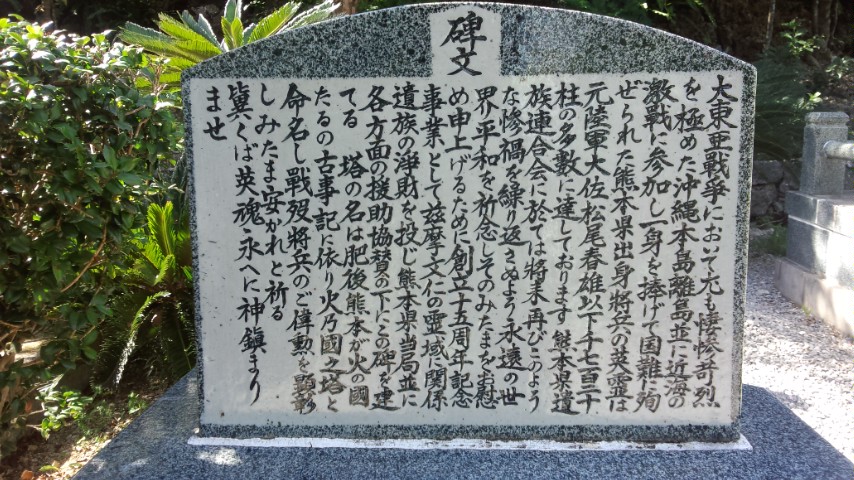 碑文
大東亜戦爭において尤も悽惨苛烈
を極めた沖縄本島離島並に近海の
激戦に参加し一身を捧げて国難に殉
ぜられた熊本県出身將兵の英霊は
元陸軍大佐松尾春雄以下千七百二十
柱の多数に達しております 熊本県遺
族連合会に於ては將来再びこのよう
な惨禍を繰り返さぬよう永遠の世
界平和を祈念しそのみたまをお慰
め申上げるために創立十五周年記念
事業として玆摩文仁の霊域に関係
遺族の浄財を投じ熊本県当局並に
各方面の援助協賛の下にこの碑を建
てる 塔の名は肥後熊本が火の國
たるの古事記に依り火乃國之塔と
命名し戦歿將兵のご偉勲を顕彰
しみたま安かれと祈る
冀くば英魂永へに神鎮まり
ませ